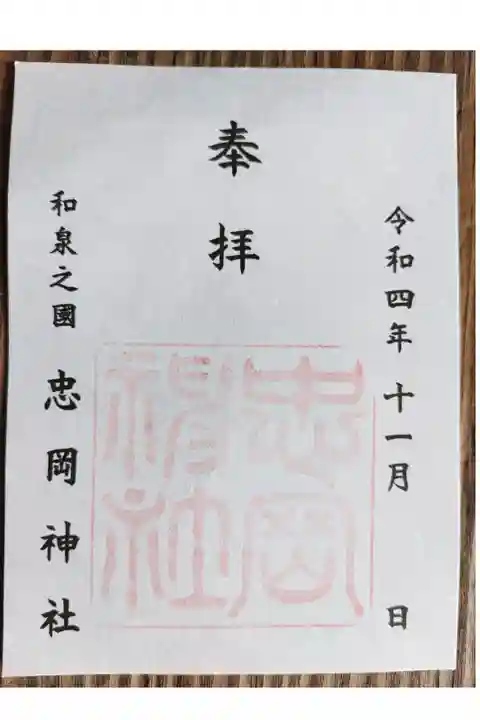 令和四年 十一月 日
奉拝
忠岡
神社
和泉之國 忠岡神社